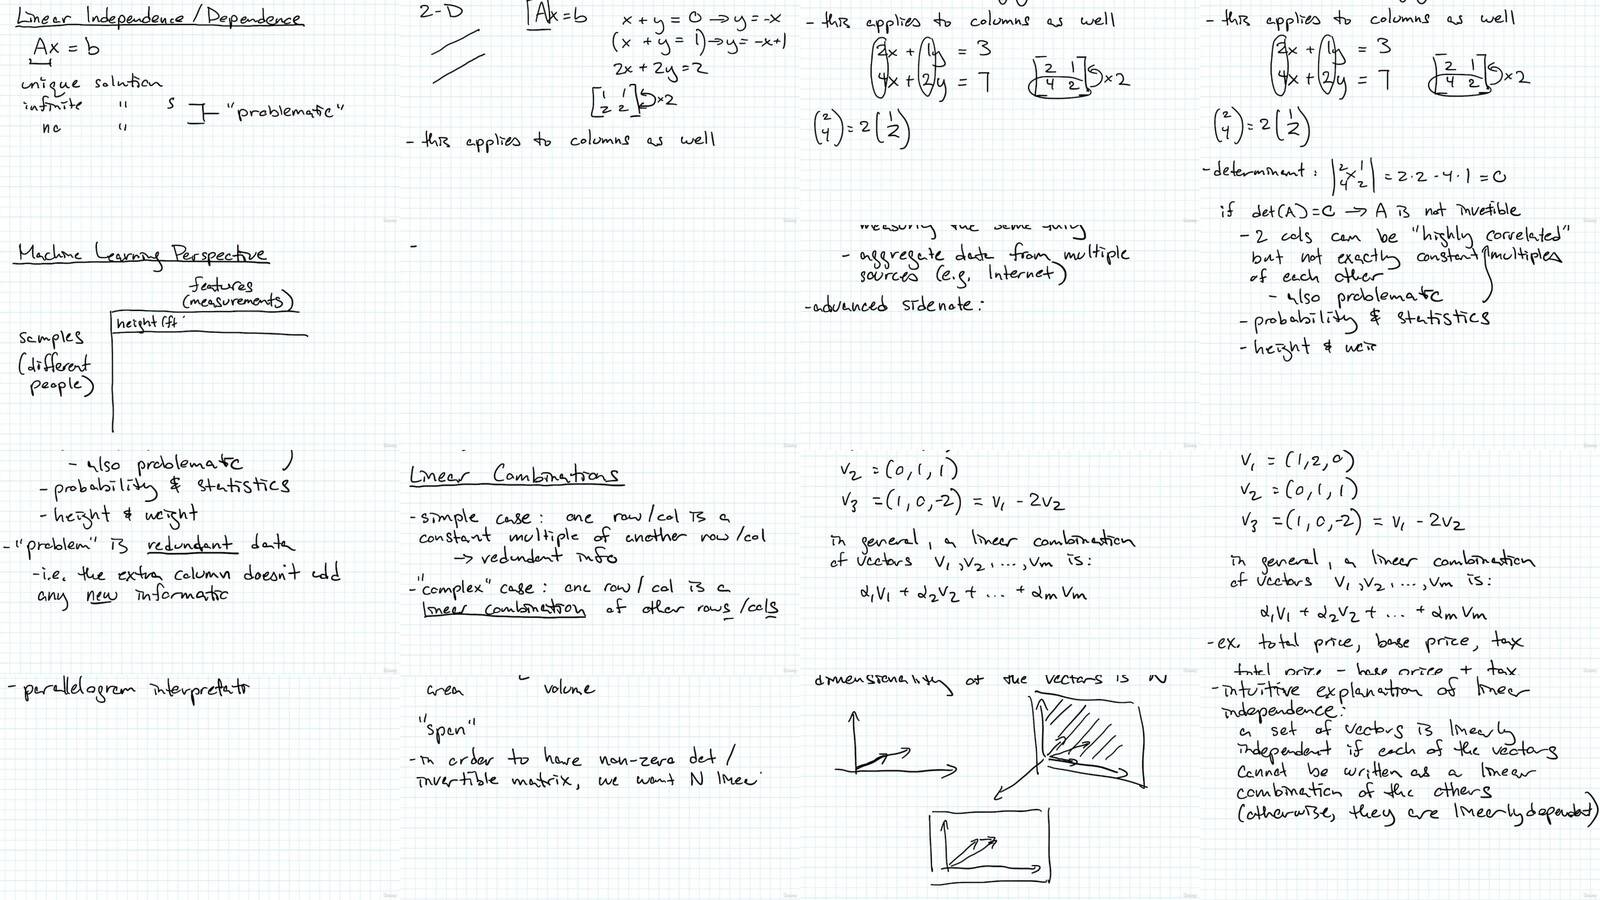 Linear Independence/Dependence
Ax = b
unique solution
infinite " s
no "
"problematic"
2-D
Ax=b
x + y = 0 → y = -x
(x + y = 1) → y = -x+1
2x + 2y = 2
[1 1
2 2] ×2
- this applies to columns as well
- this applies to columns as well
2x + 1y = 3
4x + 2y = 7
[2 1
4 2] ×2
(2 4) = 2(1 2)
- this applies to columns as well
2x + 1y = 3
4x + 2y = 7
[2 1
4 2] ×2
(2 4) = 2(1 2)
- determinant: |2 1
4 2| = 2·2 - 4·1 = 0
if det(A)=0 → A is not invetible
Machine Learning Perspective
features
(measurements)
height (ft
samples
(different
people)
-
measuring the same
- aggregate data from multiple
sources (e.g. Internet)
- advanced sidenote:
- 2 cols can be "highly correlated"
but not exactly constant multiples
of each other
- also problematic
- probability & statistics
- height & wei
- also problematic
- probability & statistics
- height & weight
- "problem" is redundant data
- i.e. the extra column doesn't add
any new informatic
Linear Combinations
- simple case: one row/col is a
constant multiple of another row/col
→ redundant info
- "complex" case: one row/col is a
linear combination of other rows/cols
v2 = (0,1,1)
v3 = (1,0,-2) = v1 - 2v2
in general, a linear combination
of vectors v1,v2,...,vm is:
α1v1 + α2v2 + ... + αmvm
v1 = (1,2,0)
v2 = (0,1,1)
v3 = (1,0,-2) = v1 - 2v2
in general, a linear combination
of vectors v1,v2,...,vm is:
α1v1 + α2v2 + ... + αmvm
- ex. total price, base price, tax
total price = base price + tax
- parallelogram interpretati
area volume
"span"
- in order to have non-zero det/
invertible matrix, we want N linea
dimensionality of the vectors is N
- intuitive explanation of linear
independence:
a set of vectors is linearly
independent if each of the vectors
cannot be written as a linear
combination of the others
(otherwise, they are linearly dependent)